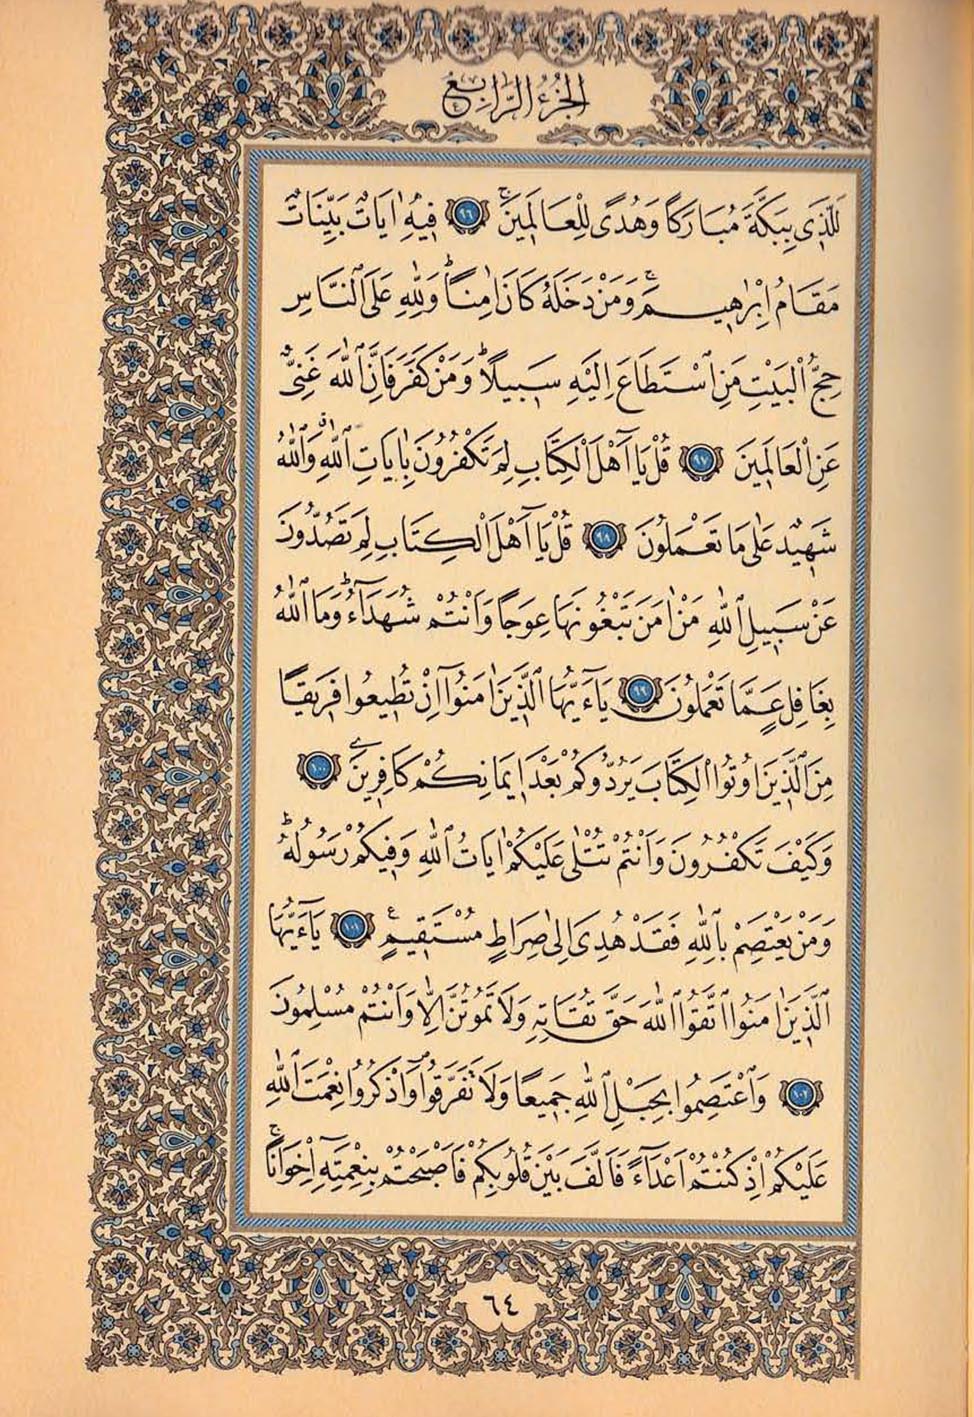 الجزء الرابع
لَلَّذٖى بِبَكَّةَ مُبَارَكًا وَهُدًى لِلْعَالَمٖينَۚ ٩٦ فٖيهِ اٰيَاتٌ بَيِّنَاتٌ
مَقَامُ اِبْرٰهٖيمَۚ وَمَنْ دَخَلَهُ كَانَ اٰمِنًاؕ وَلِلّٰهِ عَلَى ٱلنَّاسِ
حِجُّ ٱلْبَيْتِ مَنِ ٱسْتَطَاعَ اِلَيْهِ سَبٖيلًاؕ وَمَنْ كَفَرَ فَاِنَّ ٱللّٰهَ غَنِىٌّ
عَنِ ٱلْعَالَمٖينَ ٩٧ قُلْ يَآ اَهْلَ ٱلْكِتَابِ لِمَ تَكْفُرُونَ بِاٰيَاتِ ٱللّٰهِۗ وَٱللّٰهُ
شَهٖيدٌ عَلٰى مَا تَعْمَلُونَ ٩٨ قُلْ يَآ اَهْلَ ٱلْكِتَابِ لِمَ تَصُدُّونَ
عَنْ سَبٖيلِ ٱللّٰهِ مَنْ اٰمَنَ تَبْغُونَهَا عِوَجًا وَاَنْتُمْ شُهَدَآءُؕ وَمَا ٱللّٰهُ
بِغَافِلٍ عَمَّا تَعْمَلُونَ ٩٩ يَآءَيُّهَا ٱلَّذٖينَ اٰمَنُوٓا اِنْ تُطٖيعُوا فَرٖيقًا
مِنَ ٱلَّذٖينَ اُوتُوا ٱلْكِتَابَ يَرُدُّوكُمْ بَعْدَ اٖيمَانِكُمْ كَافِرٖينَ ١٠٠
وَكَيْفَ تَكْفُرُونَ وَاَنْتُمْ تُتْلٰى عَلَيْكُمْ اٰيَاتُ ٱللّٰهِ وَفٖيكُمْ رَسُولُهُؕ
وَمَنْ يَعْتَصِمْ بِٱللّٰهِ فَقَدْ هُدِىَ اِلٰى صِرَاطٍ مُسْتَقٖيمٍ ١٠١ يَآءَيُّهَا
ٱلَّذٖينَ اٰمَنُوا ٱتَّقُوا ٱللّٰهَ حَقَّ تُقَاتِهٖ وَلَا تَمُوتُنَّ اِلَّا وَاَنْتُمْ مُسْلِمُونَ
١٠٢ وَٱعْتَصِمُوا بِحَبْلِ ٱللّٰهِ جَمٖيعًا وَلَا تَفَرَّقُوا وَٱذْكُرُوا نِعْمَتَ ٱللّٰهِ
عَلَيْكُمْ اِذْ كُنْتُمْ اَعْدَآءً فَاَلَّفَ بَيْنَ قُلُوبِكُمْ فَاَصْبَحْتُمْ بِنِعْمَتِهٖٓ اِخْوَانًاۚ
٦٤